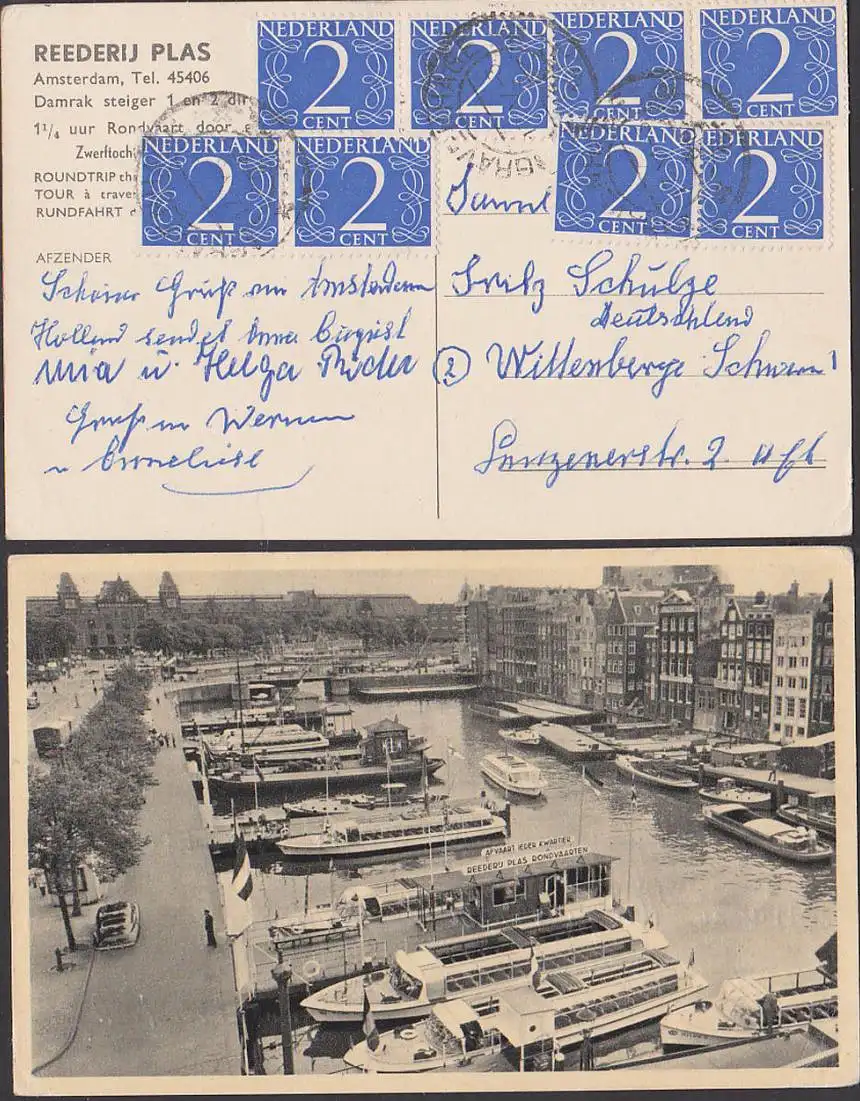 REEDERIJ PLAS
Amsterdam, Tel. 45406
Damrak steiger 1 en 2 dir
1¼ uur Rondvaart door
Zwerftoch
ROUNDTRIP th
TOUR à trave
RUNDFAHRT
AFZENDER
NEDERLAND
2
CENT
NEDERLAND
2
CENT
NEDERLAND
2
CENT
NEDERLAND
2
CENT
NEDERLAND
2
CENT
NEDERLAND
2
CENT
NEDERLAND
2
CENT
NEDERLAND
2
CENT
GRAV
Schöner Gruß Amsterdam
Holland sendet August
Mia u. Helga
Gruß Werner
u Anneliese
Fritz Schulze
Deutschland
2 Wittenberge
2
AFVAART IEDER KWARTIER
REEDERIJ PLAS RONDVAARTEN